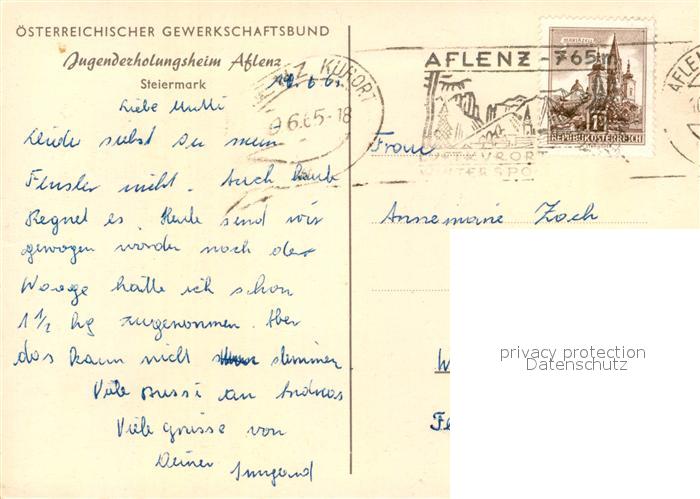 ÖSTERREICHISCHER GEWERKSCHAFTSBUND
Jugenderholungsheim Aflenz
Steiermark
Liebe Mutti
Leider siehst Du mein
Fenster nicht. Auch heute
Regnet es. Heute send wir
gewogen worden nach der
Waage hätte ich schon
1 1/2 kg zugenommen. Aber
das kann nicht stimmen
Viele Bussi an Andreas
Viele grüsse von
Deiner Irmgard
KURORT
9.6.65-18
AFLENZ - 765m
LUFTKURORT
WINTERSPO
MARIAZELL
REPUBLIK ÖSTERREICH
AFLEN
Frau
Annemarie Zach
W
Fe
privacy protection
Datenschutz